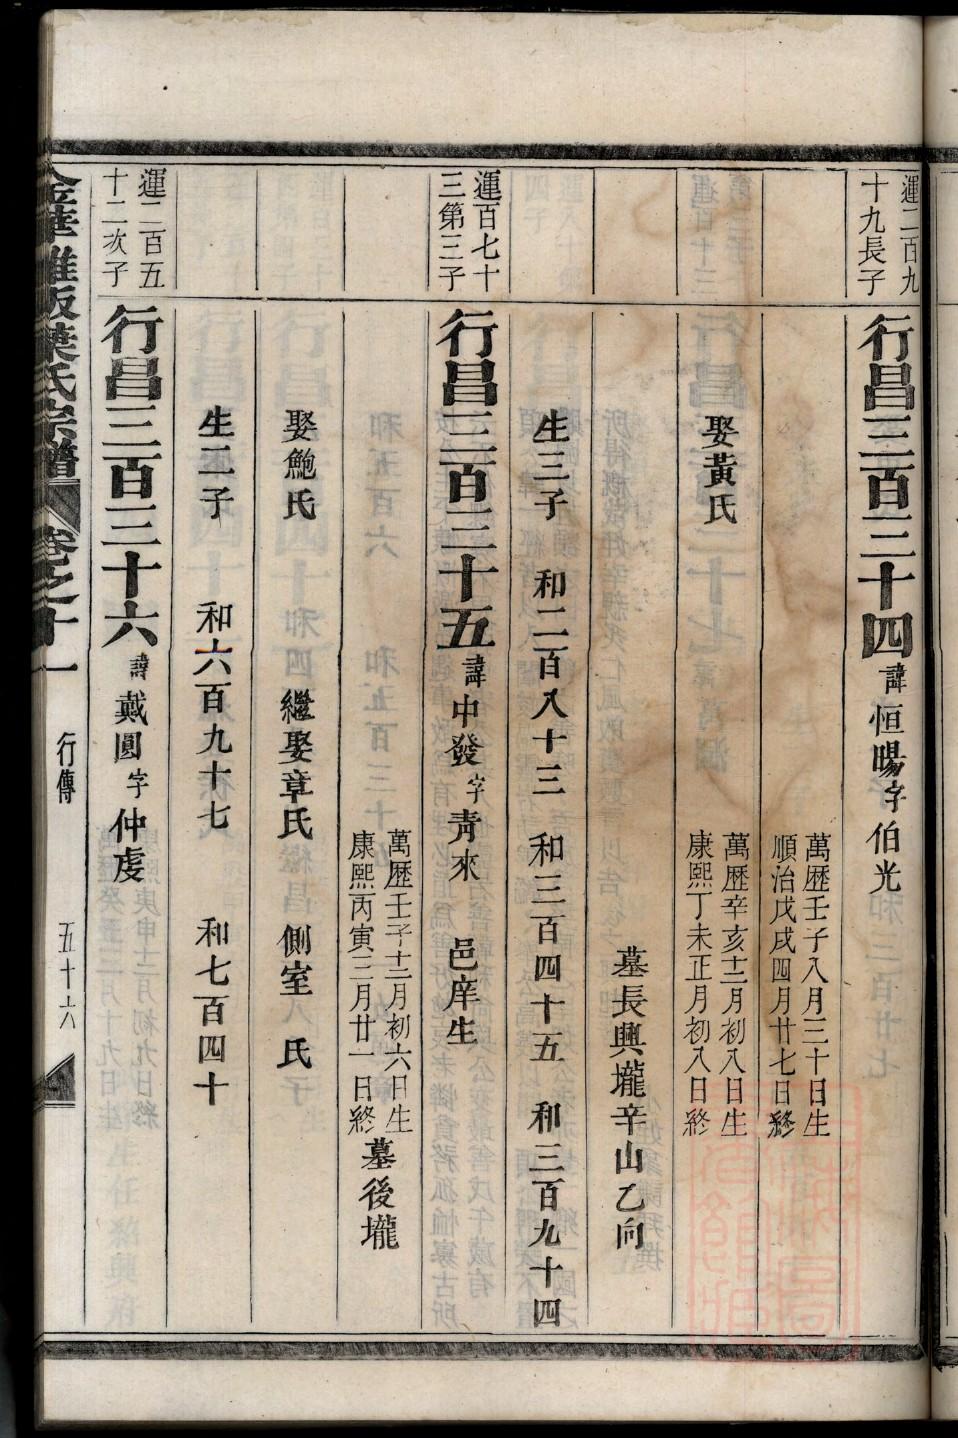 運二百九
十九長子
行昌三百三十四 諱恒暘字伯光
萬歷壬子八月三十日生
順治戊戌四月廿七日終
娶黃氏
萬歷辛亥十二月初八日生
康熙丁未正月初八日終
墓長興壠辛山乙向
生三子 和二百八十三 和三百四十五 和三百九十四
運百七十
三第三子
行昌三百三十五 諱中發字靑來 邑庠生
萬歷壬子十二月初六日生
康熙丙寅三月廿一日終
墓後壠
娶鮑氏 繼娶章氏 側室 氏
生二子 和六百九十七 和七百四十
運二百五
十二次子
行昌三百三十六 諱戴圓字仲虔
氏宗譜 卷之十一 行傳 五十六